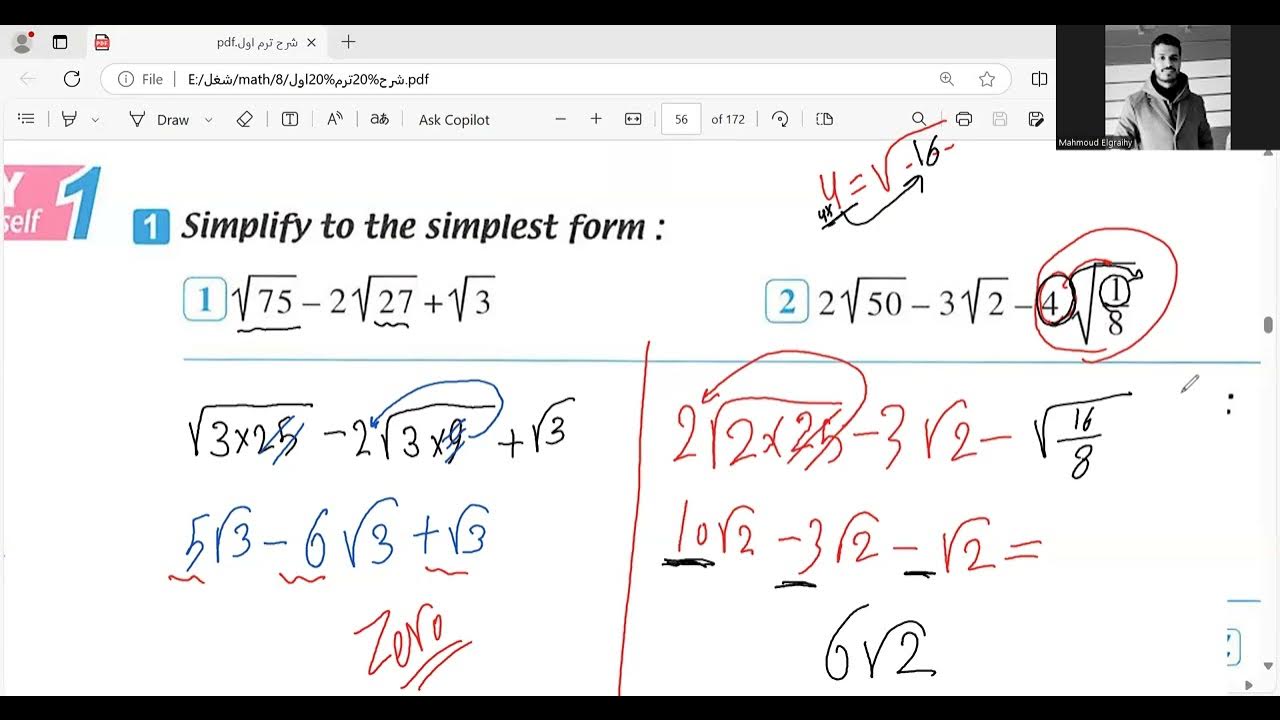 شرح ترم اول.pdf
File E:/شغل/math/8/شرح%20ترم%20اول.pdf
Draw aあ Ask Copilot 56 of 172
Mahmoud Elgraihy
4 = √16
4×
1 Simplify to the simplest form :
1 √75 – 2√27 + √3
2 2√50 – 3√2 – 4√(1/8)
√(3×25) – 2√(3×9) + √3
5√3 – 6√3 + √3
Zero
2√(2×25) – 3√2 – √(16/8)
10√2 – 3√2 – √2 =
6√2